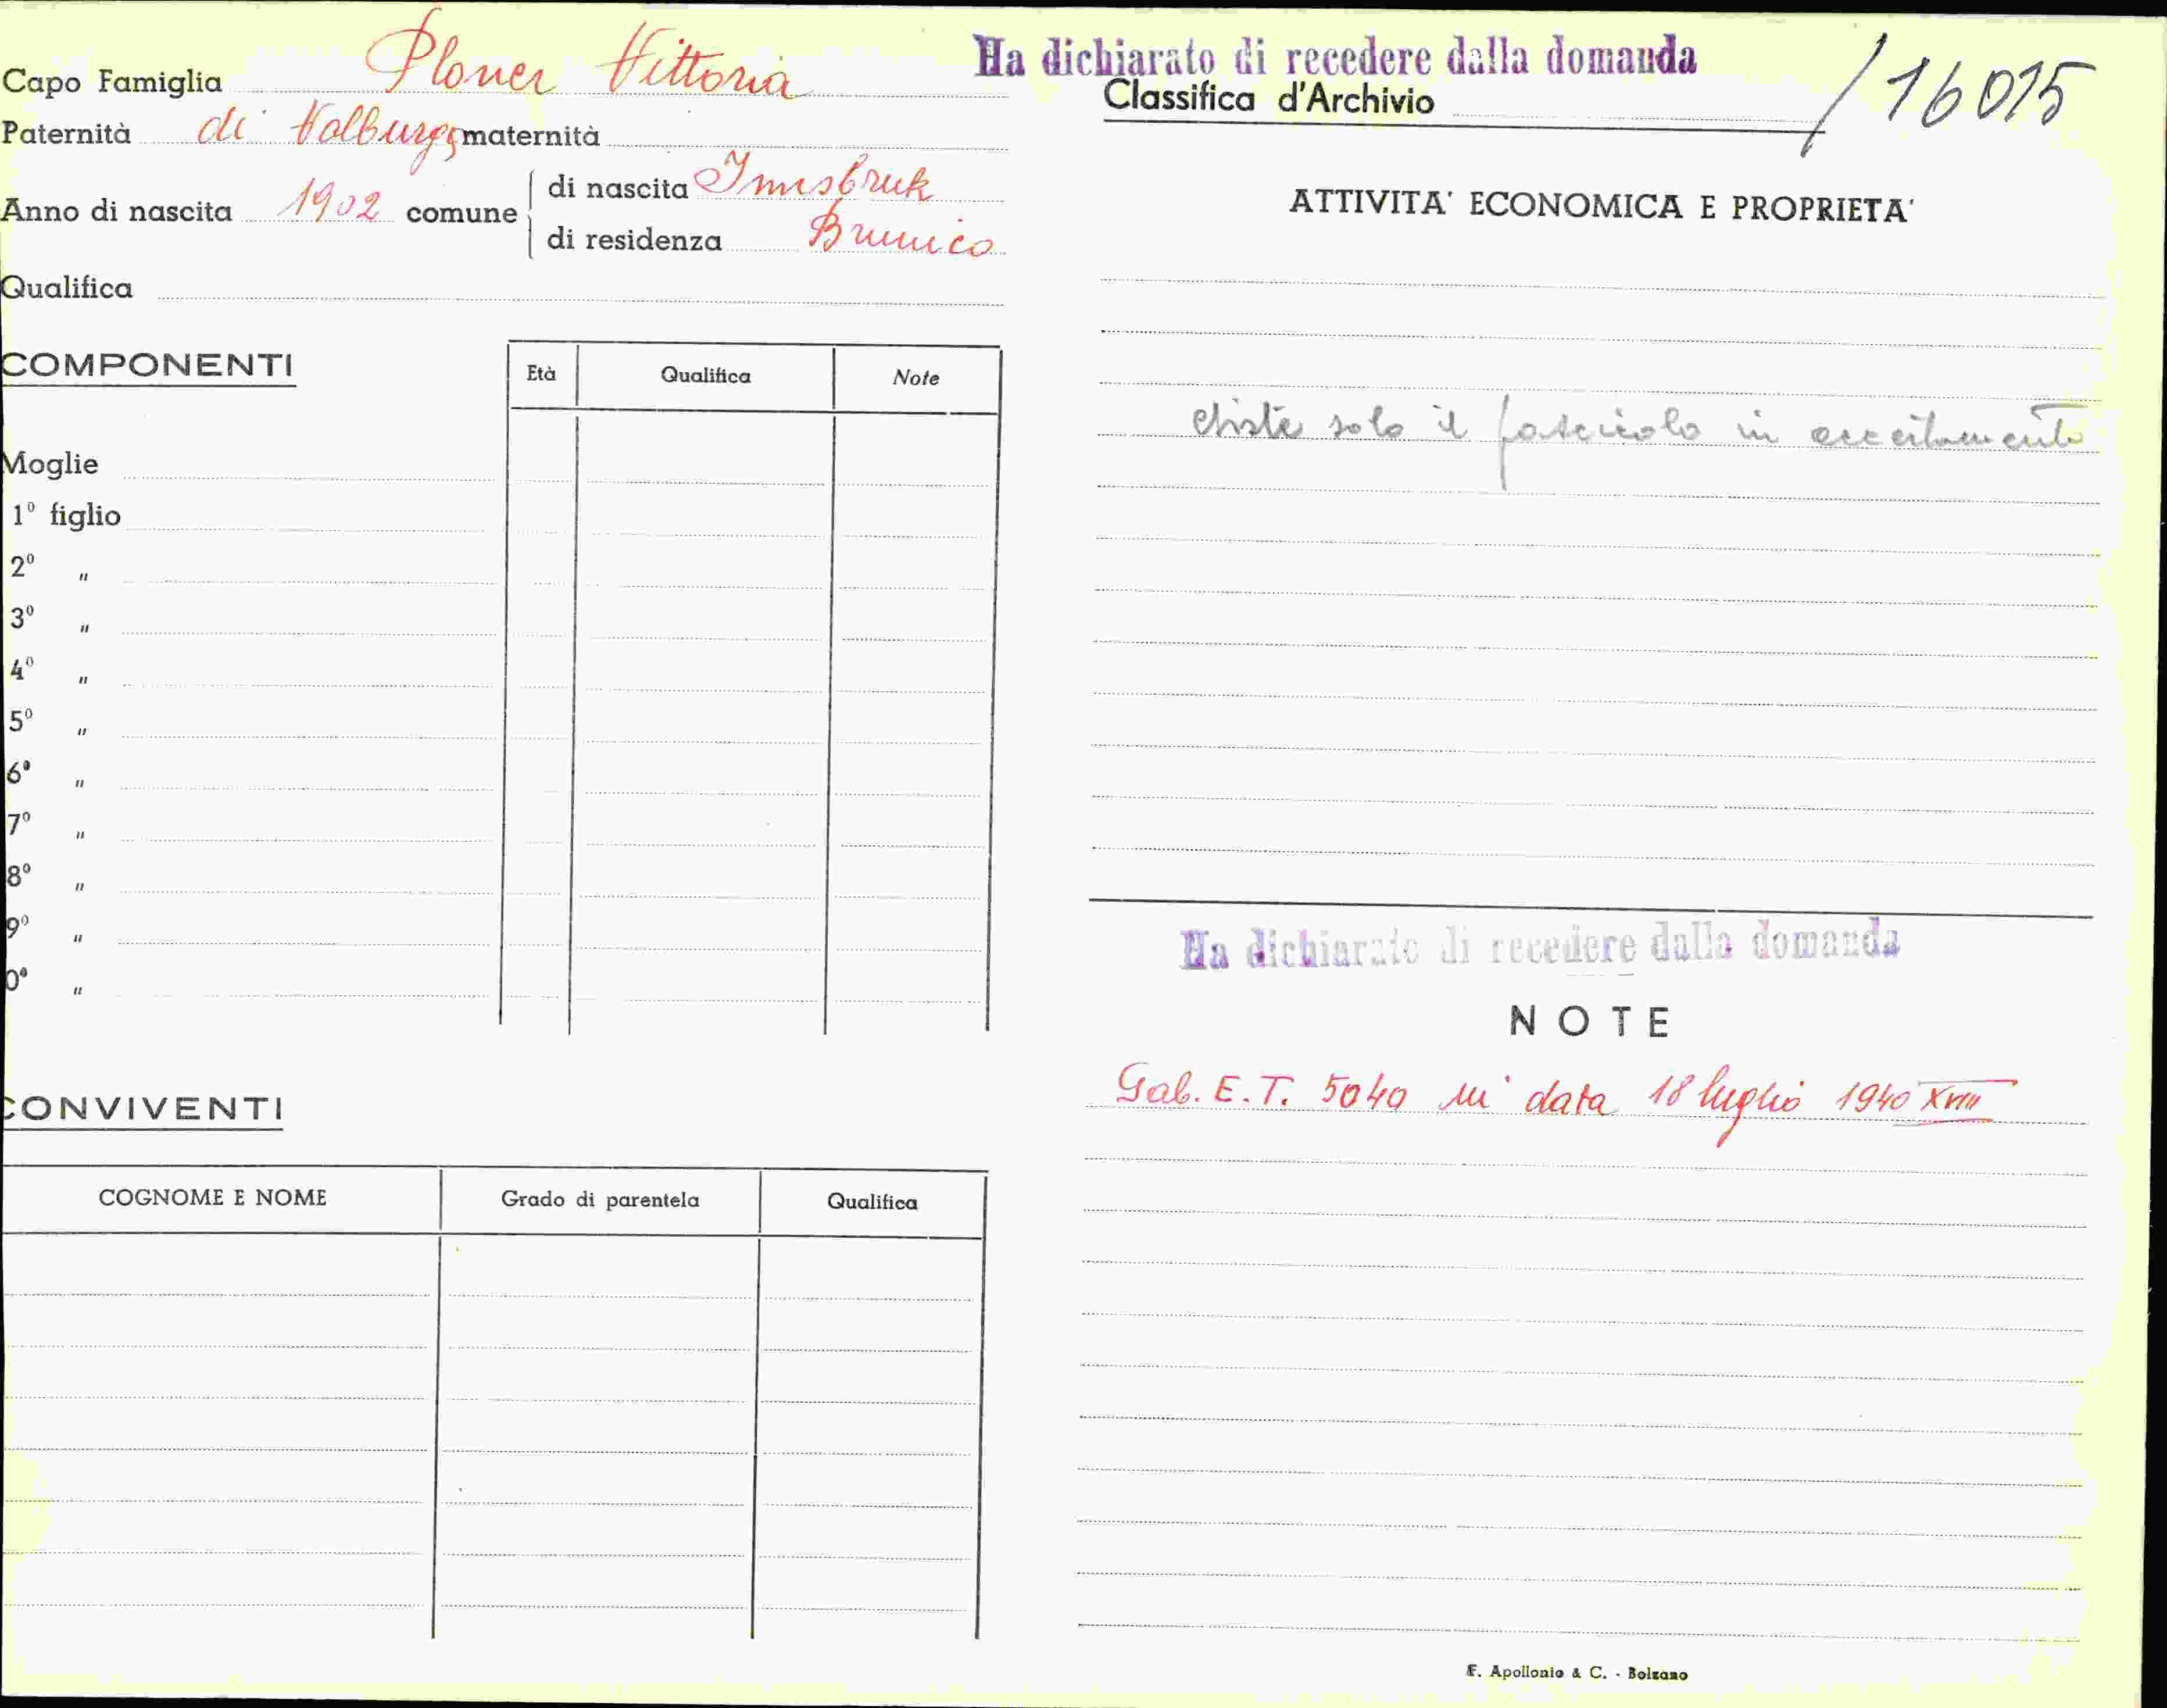 Capo Famiglia Ploner Vittoria
Paternità di Valburga maternità
Anno di nascita 1902 comune
di nascita Innsbruk
di residenza Brunico
Qualifica
COMPONENTI
Età Qualifica Note
Moglie
1º figlio
2º "
3º "
4º "
5º "
6º "
7º "
8º "
9º "
0º "
CONVIVENTI
COGNOME E NOME Grado di parentela Qualifica
Ha dichiarato di recedere dalla domanda
Classifica d'Archivio /16015
ATTIVITA' ECONOMICA E PROPRIETA'
esiste solo il fascicolo in
Ha dichiarato di recedere dalla domanda
NOTE
Gab. E.T. 5040 in data 18 luglio 1940 XVIII
F. Apollonio & C. - Bolzano